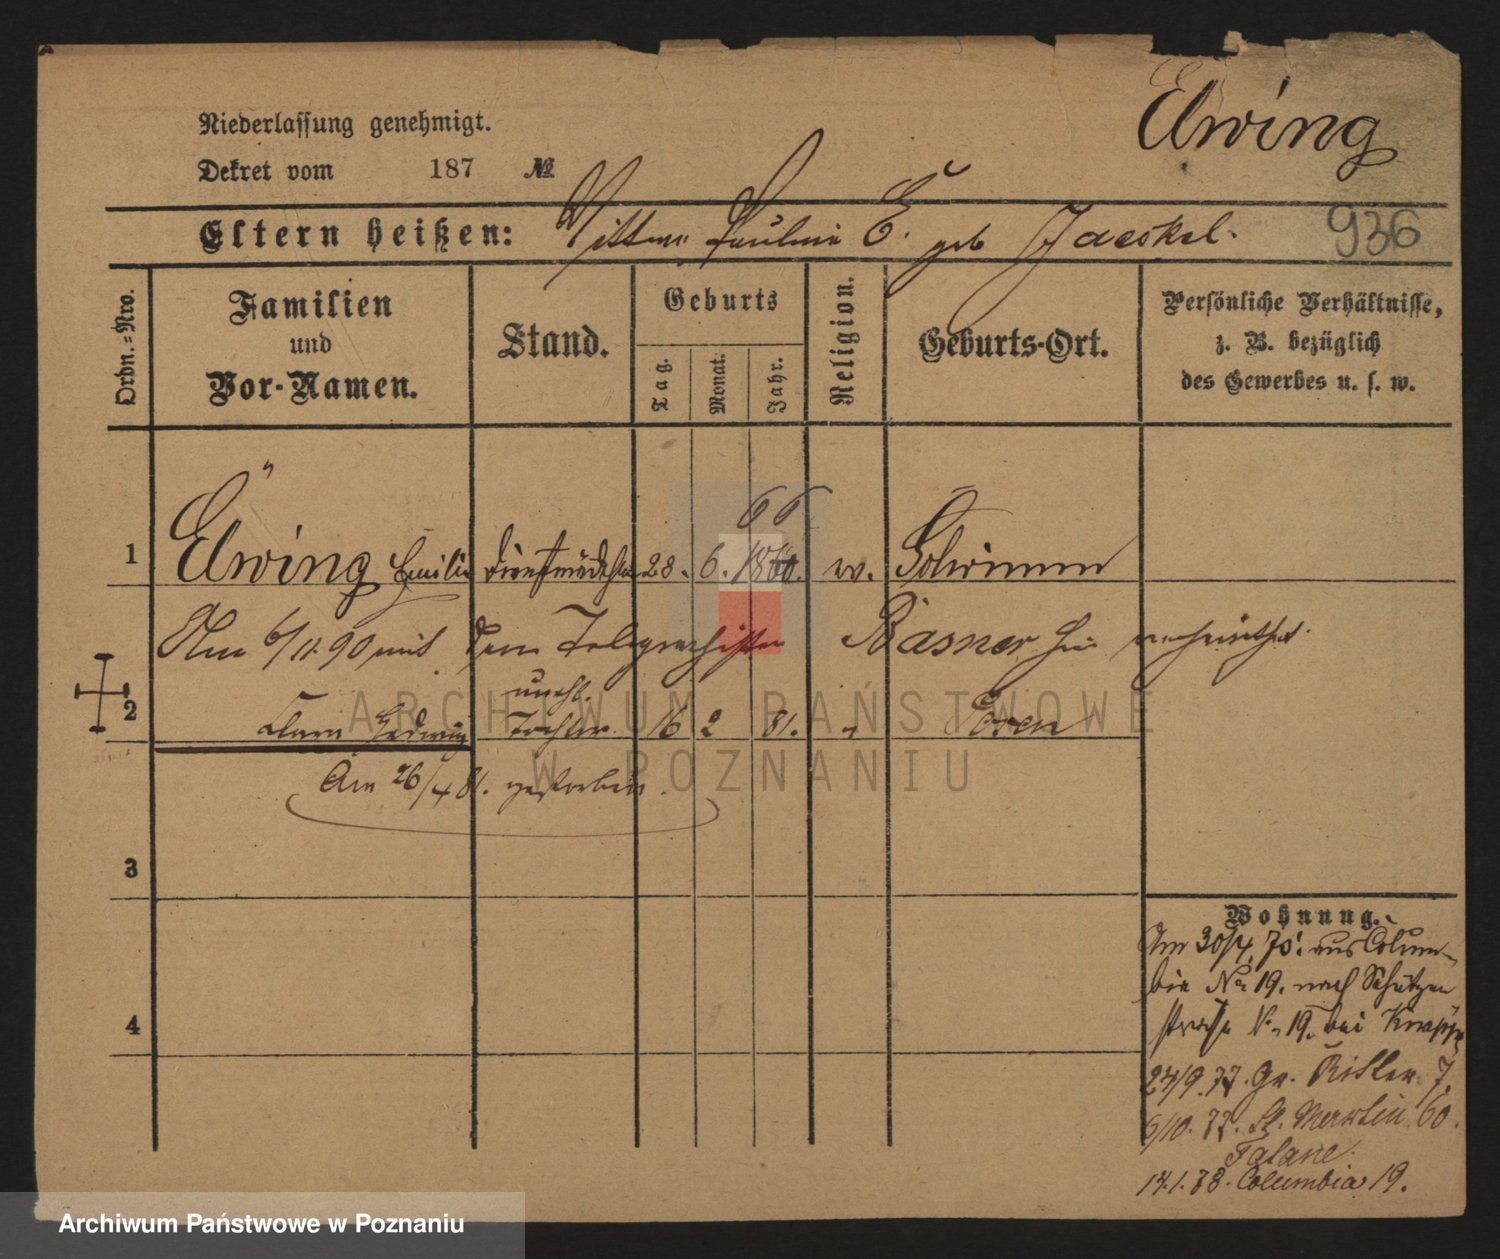 Elwing
Niederlassung genehmigt.
Dekret vom 187 №
Eltern heißen: Wittwe Pauline E. geb Jaeckel.
936
Ordn.=Nro.
Familien
und
Vor-Namen.
Stand.
Geburts
Tag. Monat. Jahr.
Religion.
Geburts-Ort.
Persönliche Verhältnisse,
z. B. bezüglich
des Gewerbes u. s. w.
66
1 Elwing Emilie Dienstmädchen 28. 6. 1860. ev. Schrimm
Am 6/11.90 mit dem Telegraphisten Basner hier verheirathet.
unehl.
2 Clara Hedwig Tochter 16 2 81. Posen
Am 26/4 81. gestorben.
3
4
Wohnung.
Am 30/4. 70. aus Colum-
bia No 19. nach Schützen
straße No 19. bei
27/9.77. Gr. Ritter 7.
6/10.77. St. Martin 60.
14.1.78. Columbia 19.
ARCHIWUM PAŃSTWOWE
W POZNANIU
Archiwum Państwowe w Poznaniu